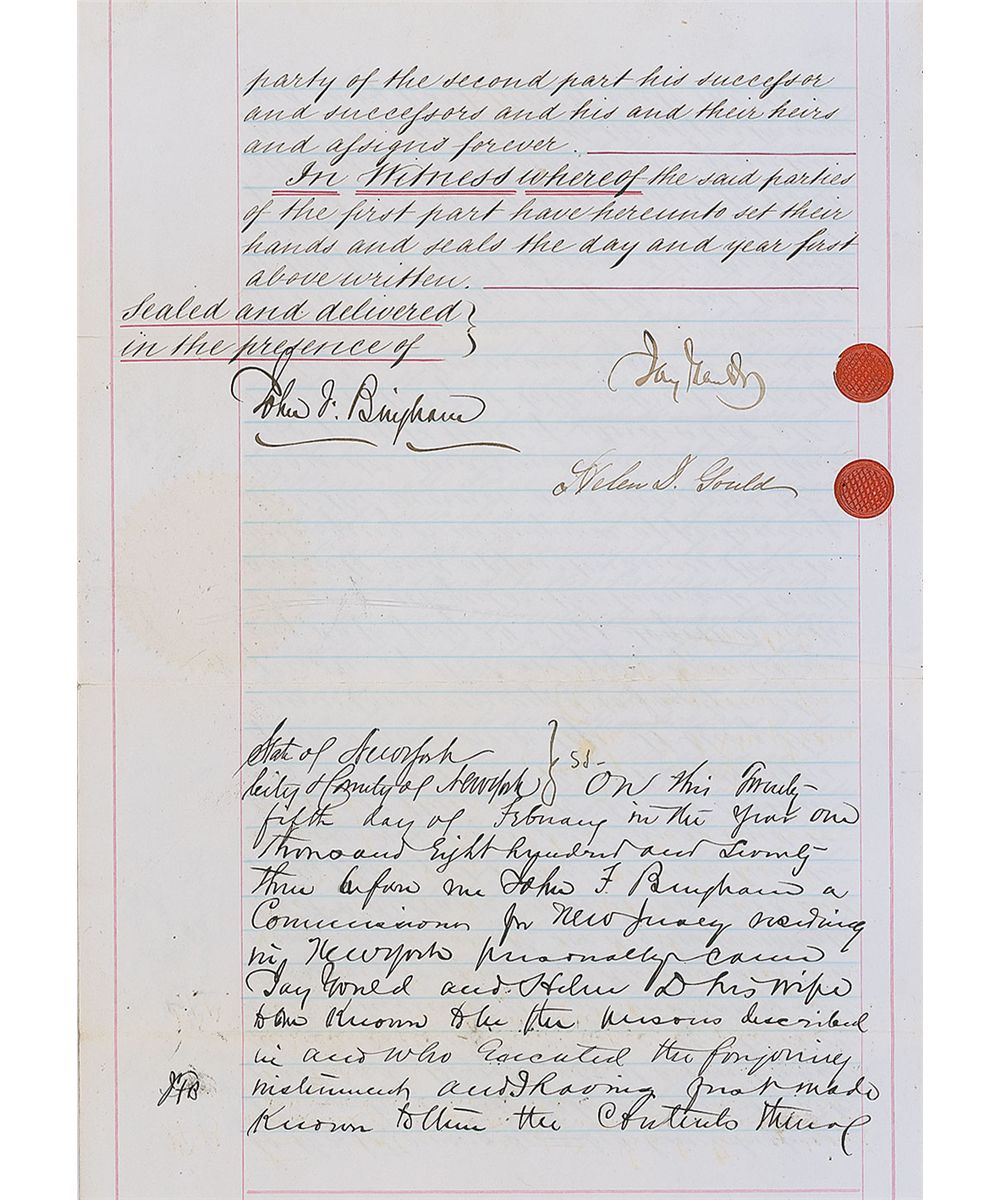 party of the second part his successor
and successors and his and their heirs
and assigns forever.
In Witness whereof the said parties
of the first part have hereunto set their
hands and seals the day and year first
above written.
Sealed and delivered
in the presence of
Jay Gould
John F. Bingham
Helen D. Gould
State of New York
City & County of New York } SS- On this Twenty
fifth day of February in the year one
thousand Eight hundred and Seventy
three before me John F. Bingham a
Commissioner for New Jersey residing
in New York personally came
Jay Gould and Helen D his wife
to me Known to be the persons described
in and who Executed the foregoing
instrument and I having first made
Known to them the Contents thereof
JFB